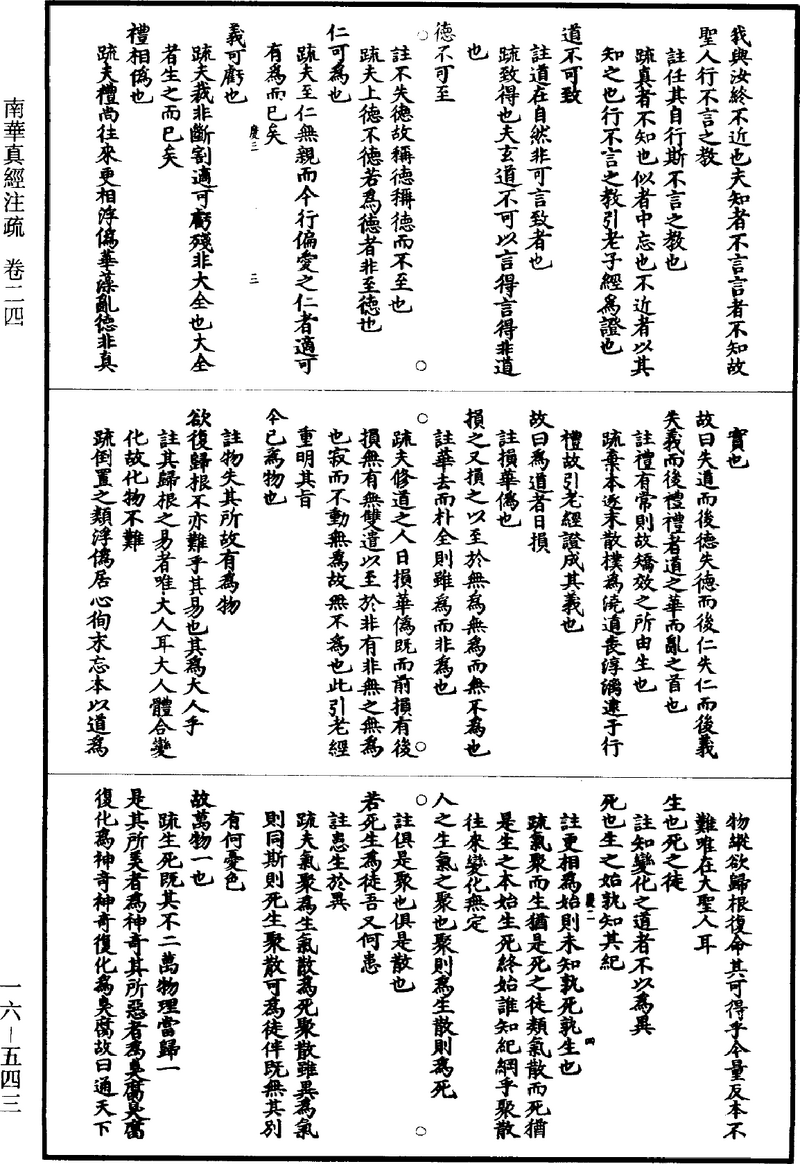 我與汝終不近也夫知者不言言者不知故
聖人行不言之教
註任其自行斯不言之教也
疏真者不知也似者中忘也不近者以其
知之也行不言之教引老子經為證也
道不可致
註道在自然非可言致者也
疏致得也夫玄道不可以言得言得非道
也
德不可至
註不失德故稱德稱德而不至也
疏夫上德不德若為德者非至德也
仁可為也
疏夫至仁無親而今行偏愛之仁者適可
有為而已矣
慶三
三
義可虧也
疏夫裁非斷割適可虧殘非大全也大全
者生之而已矣
禮相偽也
疏夫禮尚往來更相浮偽華藻亂德非真
實也
故曰失道而後德失德而後仁失仁而後義
失義而後禮禮者道之華而亂之首也
註禮有常則故矯效之所由生也
疏棄本逐末散樸為澆道喪淳漓逮于行
禮故引老經證成其義也
故曰為道者日損
註損華偽也
損之又損之以至於無為無為而無不為也
註華去而朴全則雖為而非為也
疏夫修道之人日損華偽既而前損有後
損無有無雙遣以至於非有非無之無為
也寂而不動無為故無不為也此引老經
重明其旨
今已為物也
註物失其所故有為物
欲復歸根不亦難乎其易也其為大人乎
註其歸根之易者唯大人耳大人體合變
化故化物不難
疏倒置之類浮偽居心徇末忘本以道為
物縱欲歸根復命其可得乎今量反本不
難唯在大聖人耳
生也死之徒
註知變化之道者不以為異
死也生之始孰知其紀
慶二
四
註更相為始則未知孰死孰生也
疏氣聚而生猶是死之徒類氣散而死猶
是生之本始生死終始誰知紀綱乎聚散
往來變化無定
人之生氣之聚也聚則為生散則為死
註俱是聚也俱是散也
若死生為徒吾又何患
註患生於異
疏夫氣聚為生氣散為死聚散雖異為氣
則同斯則死生聚散可為徒伴既無其別
有何憂色
故萬物一也
疏生死既其不二萬物理當歸一
是其所美者為神奇其所惡者為臭腐臭腐
復化為神奇神奇復化為臭腐故曰通天下
南華真經注疏 卷二四
一六—五四三